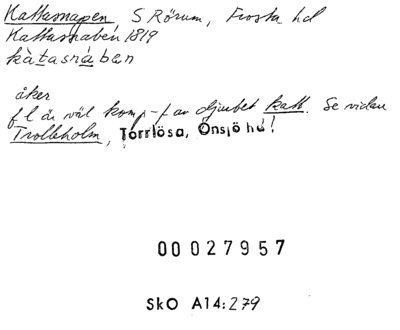 Kattasnapen, S Rörum, Frosta hd
Kattasnabén 1819
kàtasnáben
åker
f l är väl komp-f av djurbet katt. Se vidan
Trolleholm, Torrlösa, Onsjö hd!
00027957
SkO A14:279